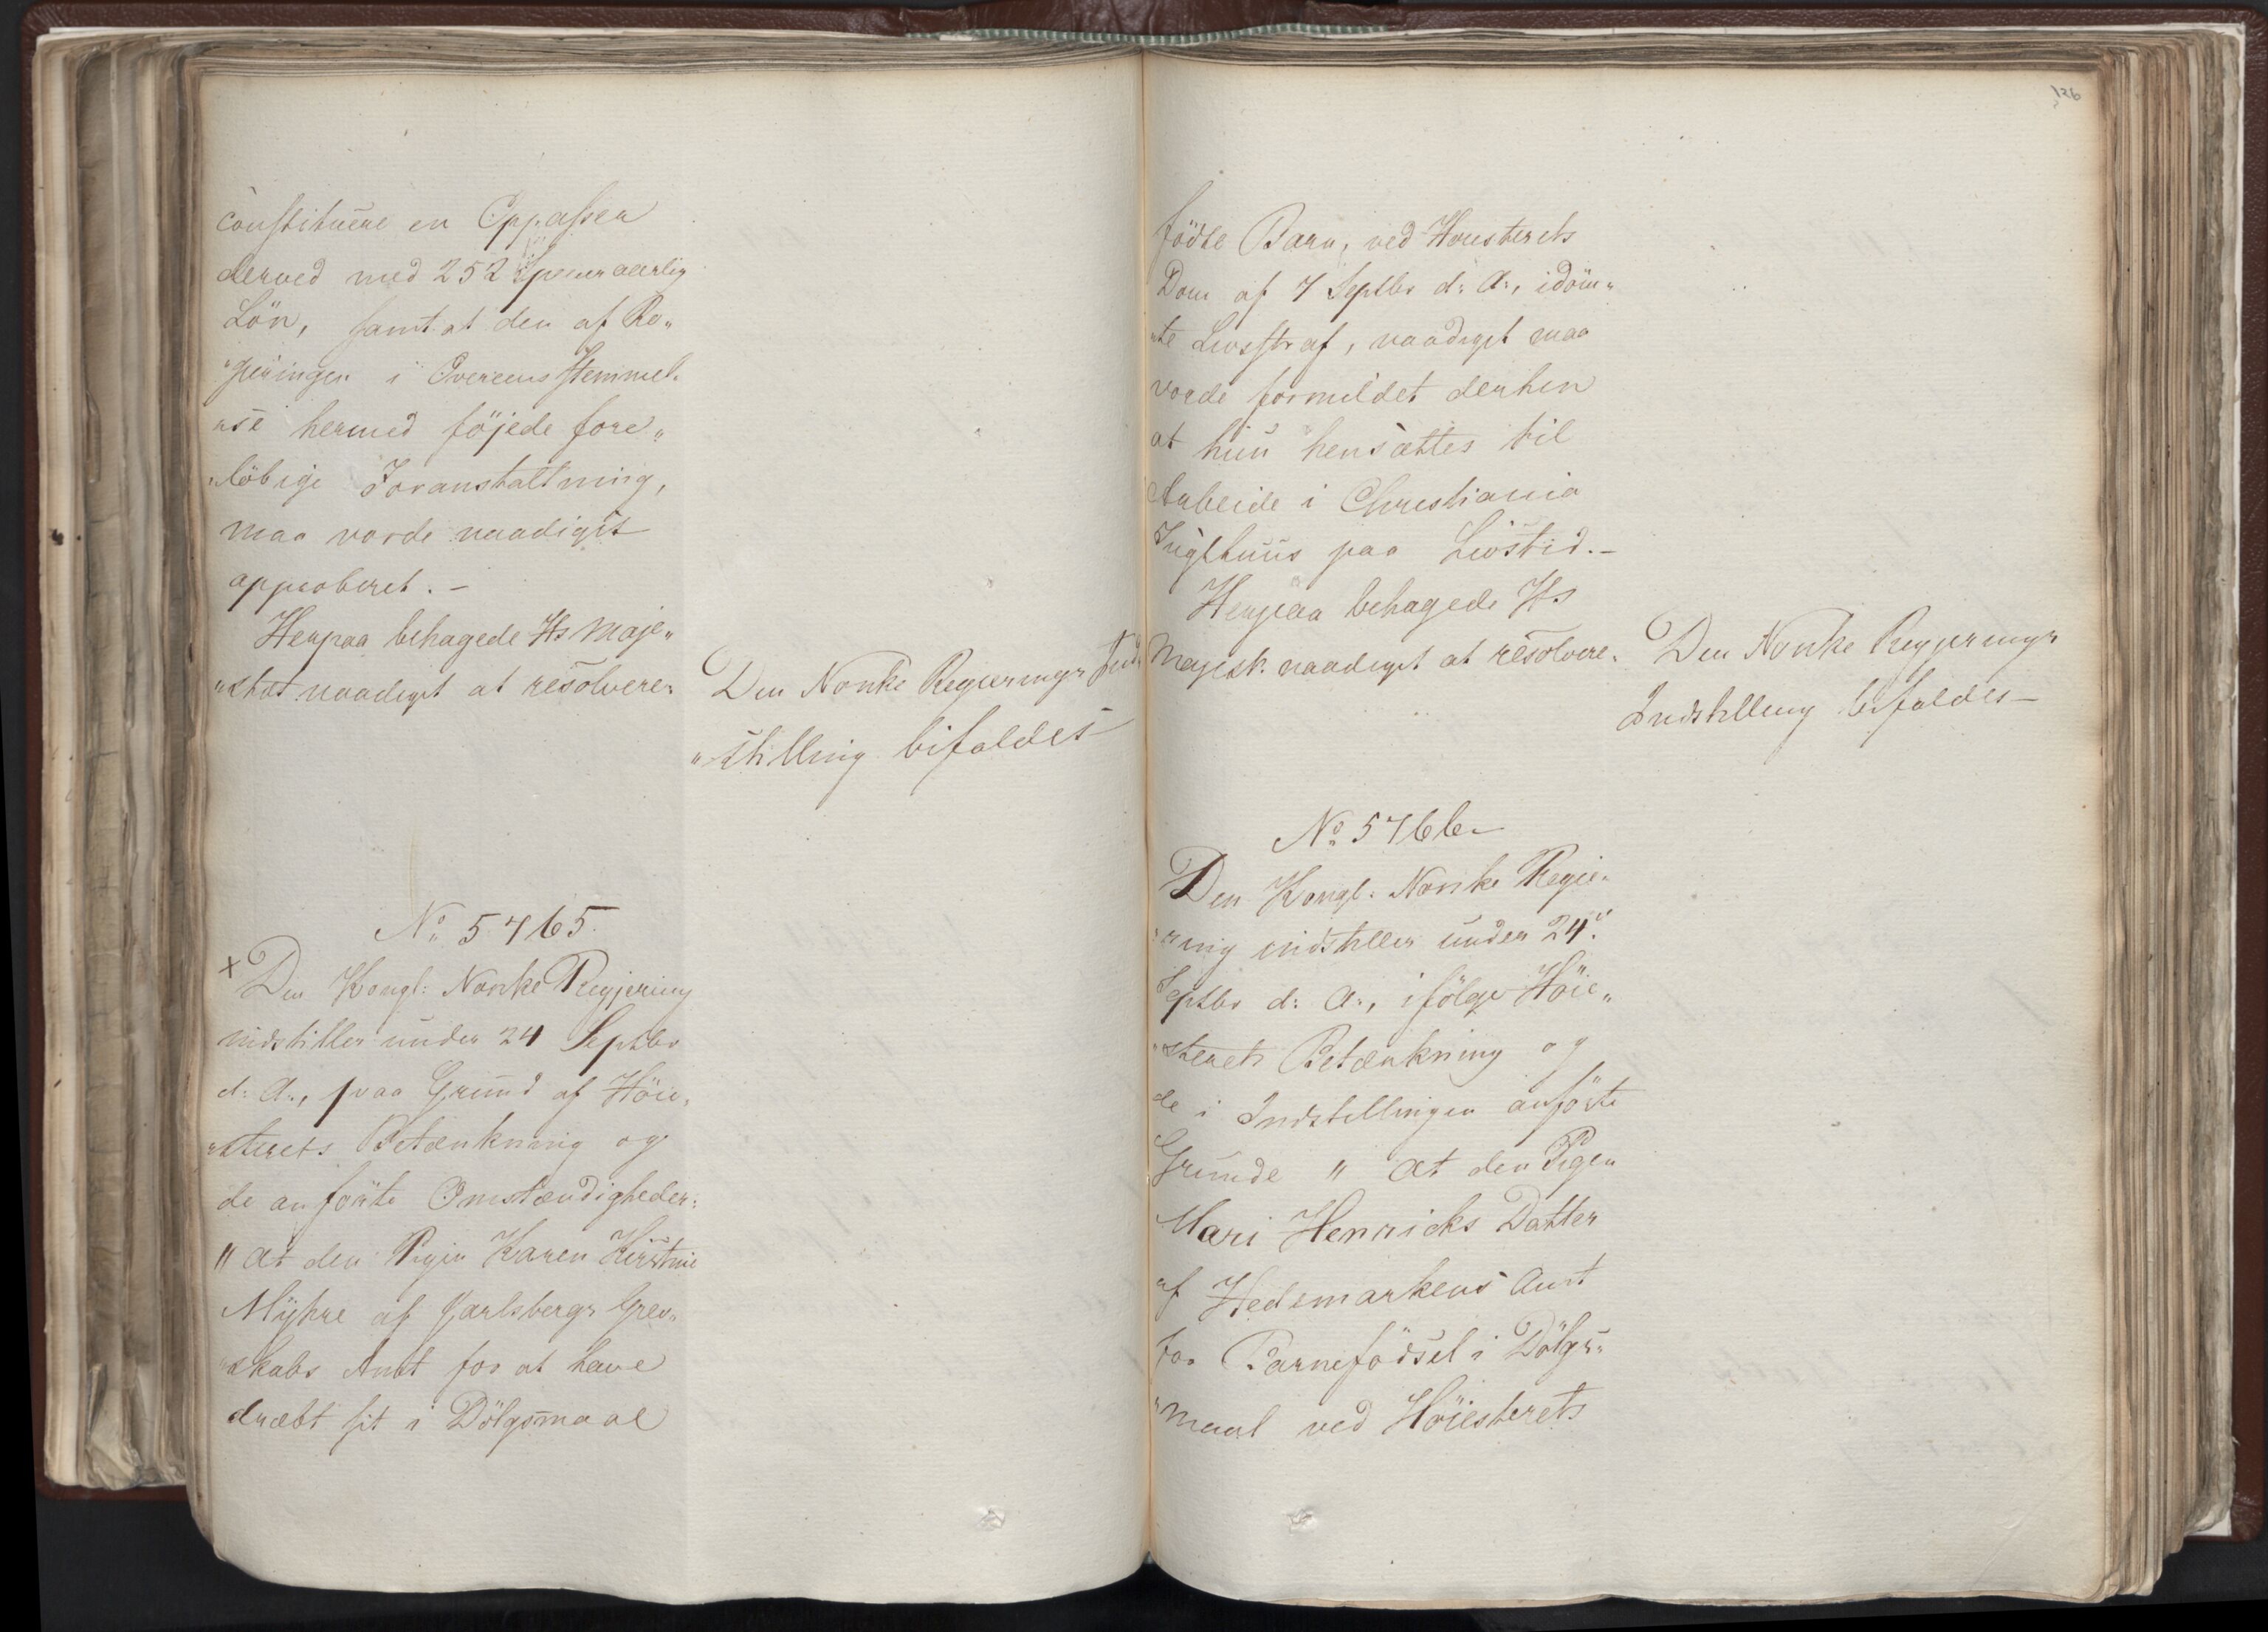 constituere en Oppasser
derved med 252 Specier aarlig
Lön, samt at den af Re„
„gjeringen i Overeensstemmel„
„se hermed föjede fore„
„löbige Foranstaltning,
maa vorde naadigst
approberet. –
Herpaa behagede Hs Maje„
„stæt naadigst at resolvere:
Den Norske Regjerings Ind„
„stilling bifaldes
No 5765.
x Den Kongl: Norske Regjering
indstiller under 24 Septbr
d: A:, paa Grund af Höie„
„sterets Betænkning og
de anförte Omstændigheder:
" at den Pigen Karen Kirstine
Mÿhre af Jarlsbergs Grev„
„skabs Amt for at have
dræbt sit i Dölgsmaal
126
födte Barn, ved Höiesterets
Dom af 7 Septbr d: A:, idöm„
„te Livsstraf, naadigst maa
vorde formildet derhen
at hun hensættes til
Arbeide i Christiania
Tugthuus paa Livstid. –
Herpaa behagede Hs
Majest. naadigst at resolvere:
Den Norske Regjerings
Indstilling bifaldes
No 5766.
Den Kongl: Norske Regje„
„ring indstiller under 24de
Septbr d: A:, ifölge Höie„
„sterets Betænkning og
de i Indstillingen anförte
Grunde " at den Pigen
Mari Henricks Datter
af Hedemarkens Amt
for Barnefödsel i Dölgs„
„maal ved Höiesterets